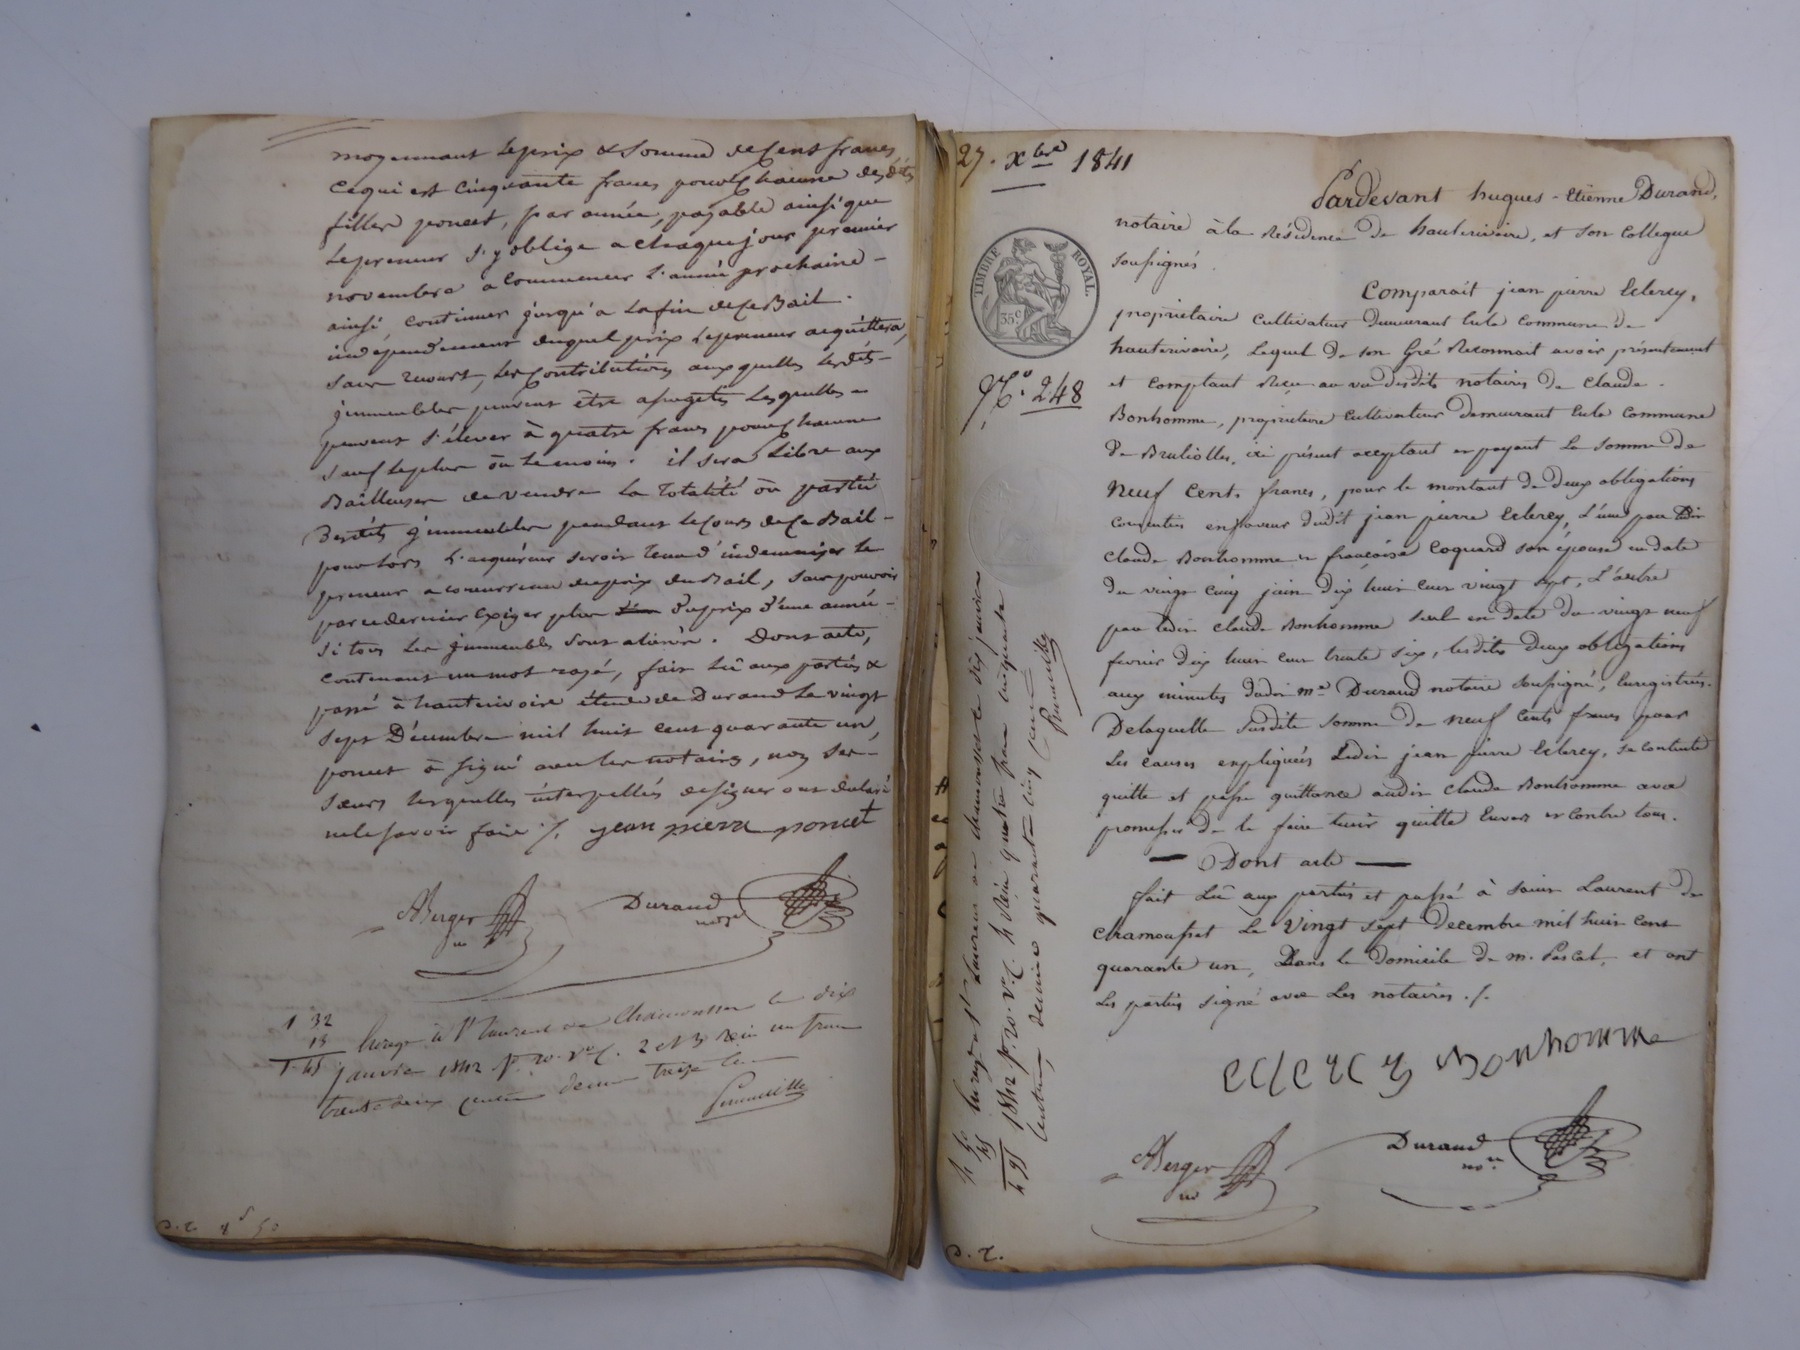 moyennant le prix & somme de Cent francs
ce qui est cinquante francs pour Chacune desdites
filles poncet, par année, payable ainsi que
le preneur s'y oblige a chaque jour premier
novembre a commencer l'année prochaine -
ainsi continuer jusqu'a la fin de ce Bail.
indépendemment duquel prix le preneur acquittera,
sans recours, les Contributions auxquelles lesdits -
jmmeubles peuvent être assujetis lesquelles -
peuvent s'élever à quatre francs pour Chacune
sauf le plus ou le moins. il sera Libre aux
Bailleuses de vendre la Totalité ou partie
Desdits jmmeubles pendant le cours de Ce Bail -
pour lors l'acquéreur seroit tenu d'indemniser le
preneur a concurrence du prix du Bail, sans pouvoir
par ce dernier Exiger plus du prix d'une année -
si tous les jmmeubles sont aliénés. Dont acte,
contenant un mot rayé, fait Lû aux parties &
passé à hauterivoire étude de Durand Le vingt
sept Décembre mil huit cent quarante un,
poncet a signé avec les notaires, non ses -
sœurs lesquelles interpellées de signer ont déclaré
ne le savoir faire /. jean pierre poncet
ABerger
no
Durand
no.re
1 32
13
1.45
Enregé à St Laurent de Chamousset le dix
Janvier 1842 fo. 20. Vo C. 2 et 3 Reçu un franc
trente deux centimes décime treize c.
d. r. 50
27. Xbre 1841
Pardevant hugues-Etienne Durand,
notaire à la Résidence de hauterivoire, et son Collegue
soussignés.
Comparait jean pierre Eclercy,
propriétaire cultivateur demeurant en la commune de
hauterivoire, Lequel de son Gré Reconnait avoir présentement
et comptant Reçu au vu desdits notaires de Claude
Bonhomme, propriétaire Cultivateur demeurant en la commune
De Brulliolles, ici présent acceptant et payant la somme de
Neuf Cents francs, pour le montant de deux obligations
consenties en faveur dudit jean pierre Eclercy, L'une par
Claude Bonhomme et françoise Coquard son épouse en date
du vingt cinq juin dix huit cent vingt sept, L'autre
par ledit Claude Bonhomme seul en date du vingt neuf
fevrier dix huit cent trente six, lesdites deux obligations
aux minutes dudit me Durand notaire soussigné, Enregistrées.
De laquelle susdite somme de neuf cents francs pour
Les causes expliquées Ledit jean pierre Eclercy, se contente
quitte et passe quittance audit Claude Bonhomme avec
promesse de le faire tenir quitte Envers et contre tous.
— Dont acte —
fait Lû aux parties et passé à saint Laurent de
chamousset Le Vingt sept Decembre mil huit cent
quarante un, Dans le domicile de m. Pascal, et ont
Les parties signé avec Les notaires./.
eclercy Bonhomme
ABerger
no
Durand
no.re
TIMBRE ROYAL.
35c
No. 248
4 50
45
4 95
Enregé à St Laurent de chamousset le dix janvier
1842 fo. 20. Vo. C. 4 Reçu quatre francs cinquante
centimes, décime quarante cinq centimes
d. r.